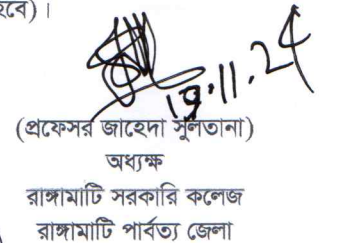 হবে) ।
19.11.24
(প্রফেসর জাহেদা সুলতানা)
অধ্যক্ষ
রাঙ্গামাটি সরকারি কলেজ
রাঙ্গামাটি পার্বত্য জেলা